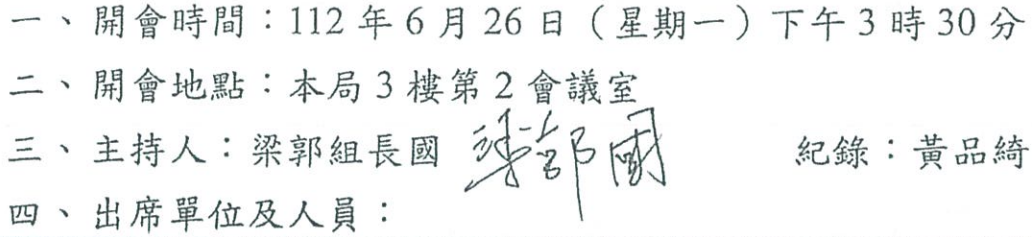 一、開會時間：112 年 6 月 26 日（星期一）下午 3 時 30 分
二、開會地點：本局 3 樓第 2 會議室
三、主持人：梁郭組長國 梁郭國 紀錄：黃品綺
四、出席單位及人員：